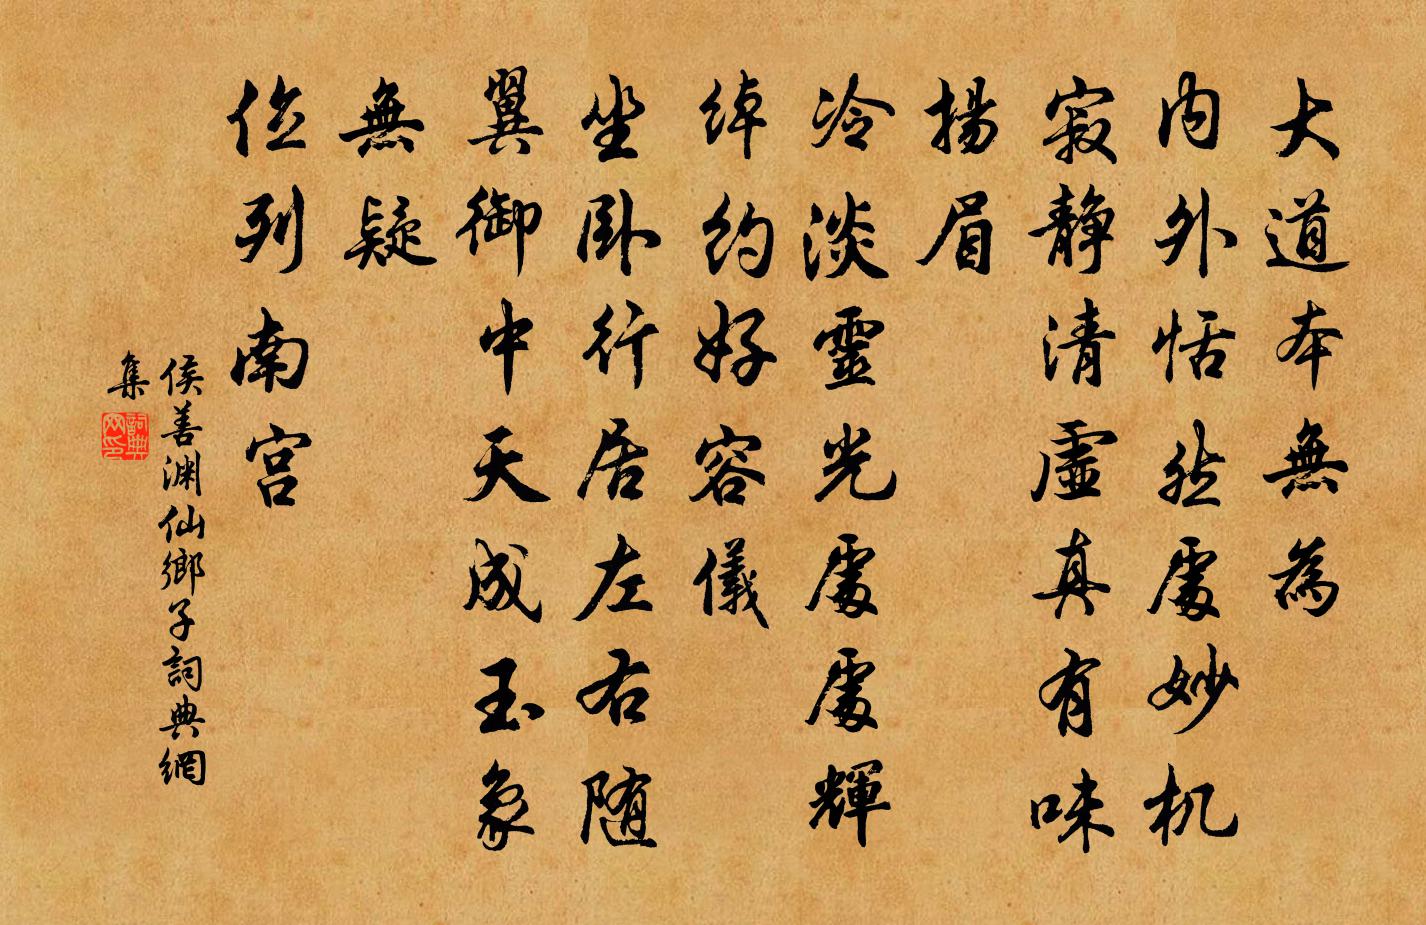 大道本無為
内外恬然處妙机
寂静清虛真有味
揚眉
冷淡靈光處處輝
綽約好容儀
坐卧行居左右随
翼御中天成玉象
無疑
位列南宫
侯善渊仙鄉子詞典網
集
詞典網印